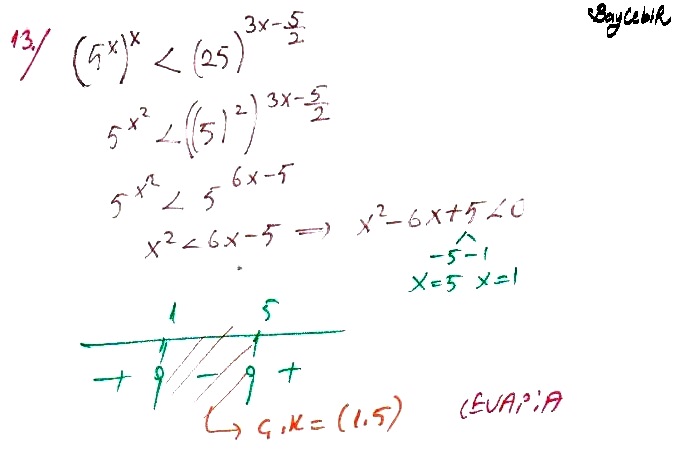 BayCebiR
13./ (5^x)^x < (25)^(3x-5/2)
5^(x^2) < ((5)^2)^(3x-5/2)
5^(x^2) < 5^(6x-5)
x^2 < 6x-5 ⇒ x^2-6x+5 < 0
-5 -1
x=5 x=1
1 5
+ - +
Ç.K = (1,5) CEVAP:A